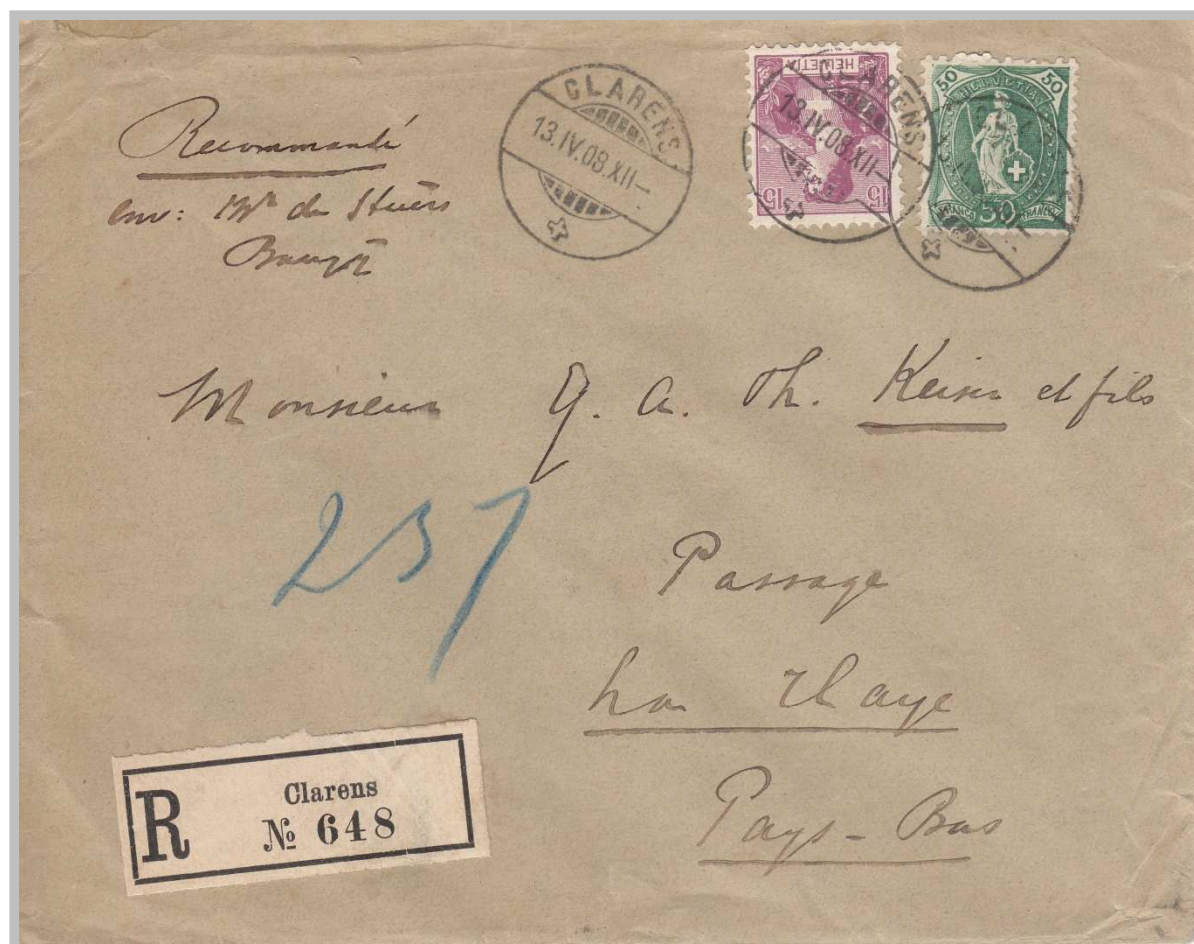 Recommandé
env: Mr de Stuers
CLARENS
13.IV.08.XII–
HELVETIA
15 15
CLARENS
13.IV.08.XII–
50 50
HELVETIA
FRANCO 50 FRANCO
Monsieur J. A. Th. Keiser et fils
257
Passage
La Haye
Pays-Bas
R Clarens
№ 648